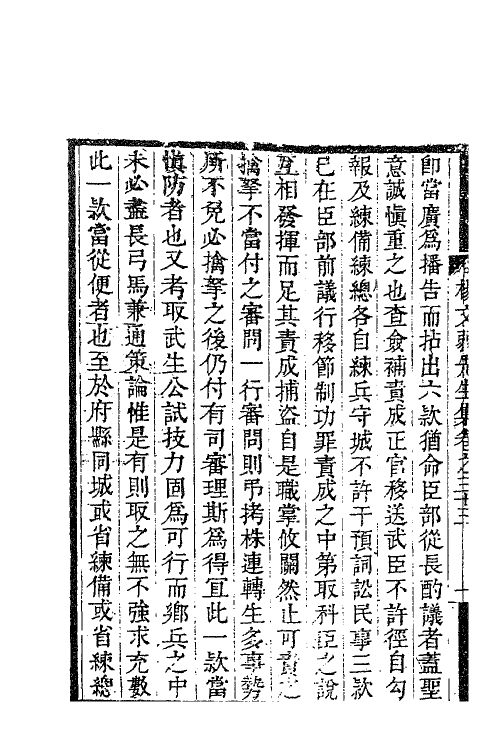 楊文弱先生集卷之三十三
十
卽當廣爲播告而拈出六款猶命臣部從長酌議者蓋聖
意誠愼重之也查僉補責成正官移送武臣不許徑自勾
報及練備練總各自練兵守城不許干預詞訟民事三款
已在臣部前議行移節制功罪責成之中第取科臣之說
互相發揮而足其責成捕盜自是職掌攸關然止可責之
擒拏不當付之審問一行審問則弔拷株連轉生多事勢
所不免必擒拏之後仍付有司審理斯爲得宜此一款當
愼防者也又考取武生公試技力固爲可行而鄉兵之中
未必盡長弓馬兼通策論惟是有則取之無不強求充數
此一款當從便者也至於府縣同城或省練備或省練總